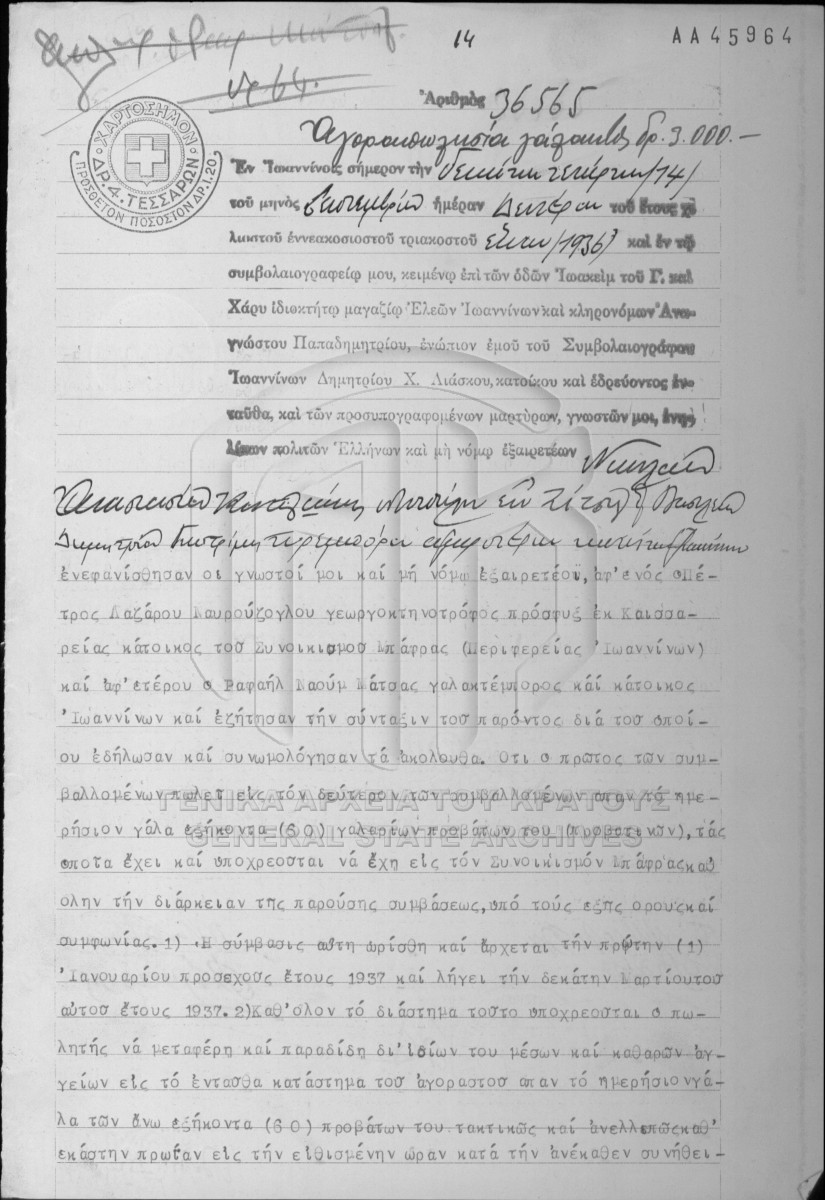 14
ΑΑ45964
Νρ 64.
Ἀριθμὸς 36565
Ἀγοραπωλησία γάλακτος δρ. 3.000.—
ΧΑΡΤΟΣΗΜΟΝ
ΔΡ. 4. ΤΕΣΣΑΡΩΝ
ΠΡΟΣΘΕΤΟΝ ΠΟΣΟΣΤΟΝ ΔΡ. 1.20
Ἐν Ἰωαννίνοις σήμερον τὴν δεκάτην τετάρτην /14/
τοῦ μηνὸς Σεπτεμβρίου ἡμέραν Δευτέραν τοῦ ἔτους χι
λιοστοῦ ἐννεακοσιοστοῦ τριακοστοῦ ἕκτου /1936/ καὶ ἐν τῷ
συμβολαιογραφείῳ μου, κειμένῳ ἐπὶ τῶν ὁδῶν Ἰωακεὶμ τοῦ Γ. καὶ
Χάρυ ἰδιοκτήτῳ μαγαζίῳ Ἐλεῶν Ἰωαννίνων καὶ κληρονόμων Ἀνα-
γνώστου Παπαδημητρίου, ἐνώπιον ἐμοῦ τοῦ Συμβολαιογράφου
Ἰωαννίνων Δημητρίου Χ. Λιάσκου, κατοίκου καὶ ἑδρεύοντος ἐν-
ταῦθα, καὶ τῶν προσυπογραφομένων μαρτύρων, γνωστῶν μοι, ἐνη-
λίκων πολιτῶν Ἑλλήνων καὶ μὴ νόμῳ ἐξαιρετέων Νικολάου
Ἀναστασίου
Δημητρίου
ἐνεφανίσθησαν οι γνωστοί μοι καί μή νόμῳ ἐξαιρετέοι, ἀφ'ενός ο Πέ-
τρος Λαζάρου Μαυρούζογλου γεωργοκτηνοτρόφος πρόσφυξ ἐκ Καισσα-
ρείας κάτοικος τοῦ Συνοικισμοῦ Μπάφρας (Περιφερείας Ἰωαννίνων)
καί ἀφ'ετέρου ο Ραφαήλ Ναούμ Μάτσας γαλακτέμπορος καί κάτοικος
Ἰωαννίνων καί ἐζήτησαν τήν σύνταξιν τοῦ παρόντος διά τοῦ οποί-
ου ἐδήλωσαν καί συνωμολόγησαν τά ἀκόλουθα. Οτι ο πρῶτος τῶν συμ-
βαλλομένων πωλεῖ εἰς τόν δεύτερον τῶν συμβαλλομένων απαν τό ημε-
ρήσιον γάλα εξήκοντα (60) γαλαρίων προβάτων του (προβατινῶν), τάς
οποῖα ἔχει καί υποχρεοῦται νά ἔχη εἰς τόν Συνοικισμόν Μπάφρας καθ
ολην τήν διάρκειαν τῆς παρούσης συμβάσεως, υπό τούς εξῆς ορους καί
συμφωνίας. 1) Η σύμβασις αὕτη ωρίσθη καί ἄρχεται τήν πρώτην (1)
Ἰανουαρίου προσεχοῦς ἔτους 1937 καί λήγει τήν δεκάτην Μαρτίου τοῦ
αὐτοῦ ἔτους 1937. 2) Καθ'ολον τό διάστημα τοῦτο υποχρεοῦται ο πω-
λητής νά μεταφέρη καί παραδίδη δι'ἰδίων του μέσων καί καθαρῶν ἀγ-
γείων εἰς τό ἐνταῦθα κατάστημα τοῦ ἀγοραστοῦ απαν τό ημερήσιον γά-
λα τῶν ἄνω εξήκοντα (60) προβάτων του τακτικῶς καί ἀνελλειπῶς καθ'
εκάστην πρωΐαν εἰς τήν εἰθισμένην ώραν κατά τήν ἀνέκαθεν συνήθει-
ΓΕΝΙΚΑ ΑΡΧΕΙΑ ΤΟΥ ΚΡΑΤΟΥΣ
GENERAL STATE ARCHIVES